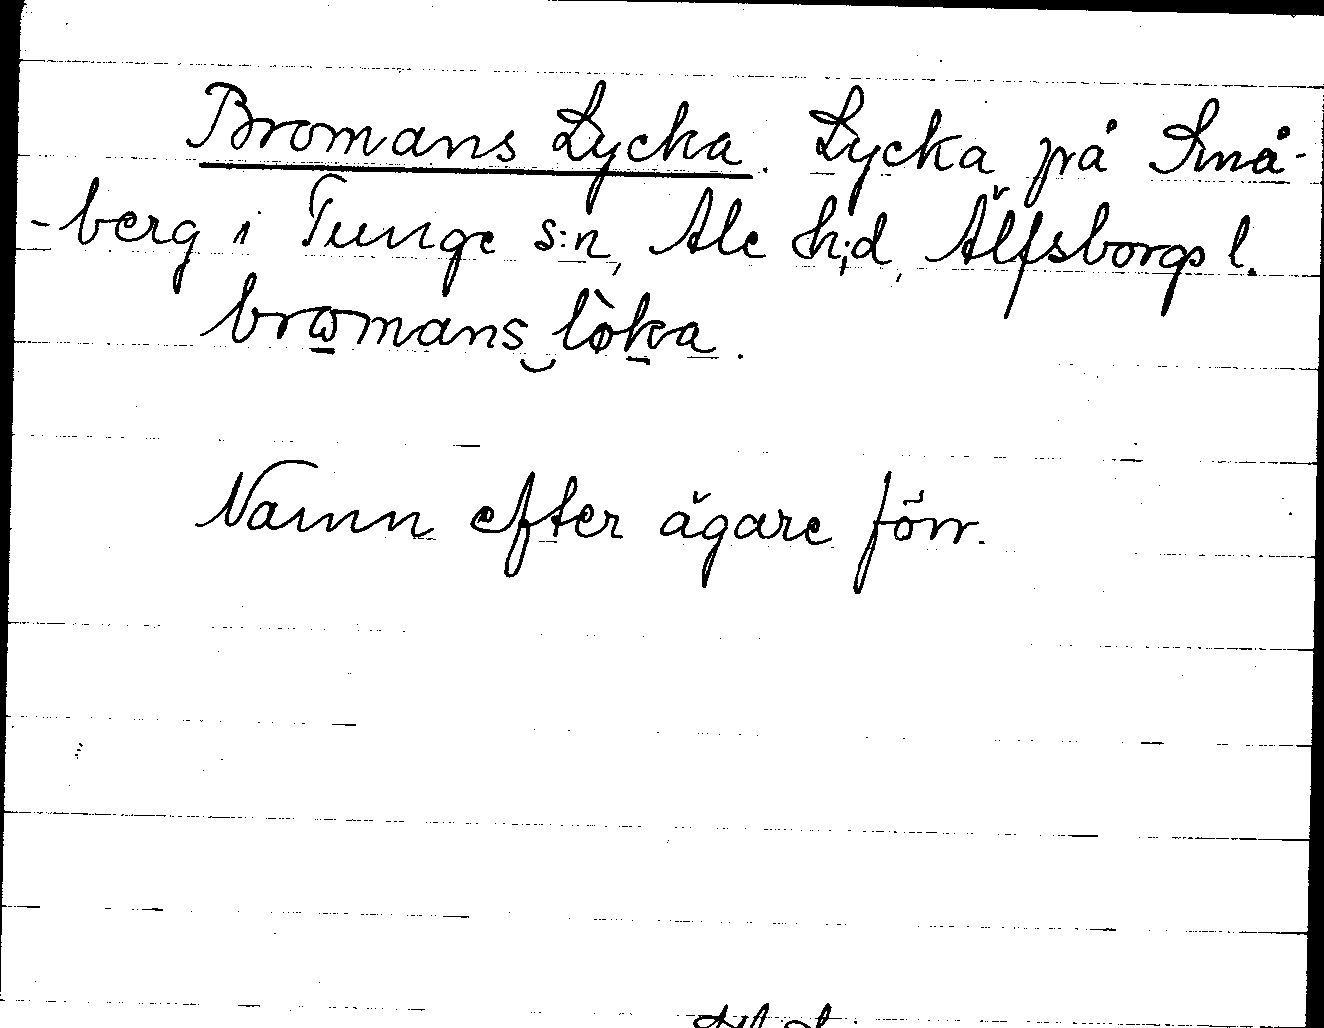 Bromans Lycka. Lycka på Små-
-berg i Tunge s:n, Ale h:d, Älfsborgs l.
bromans löka.
Namn efter ägare förr.